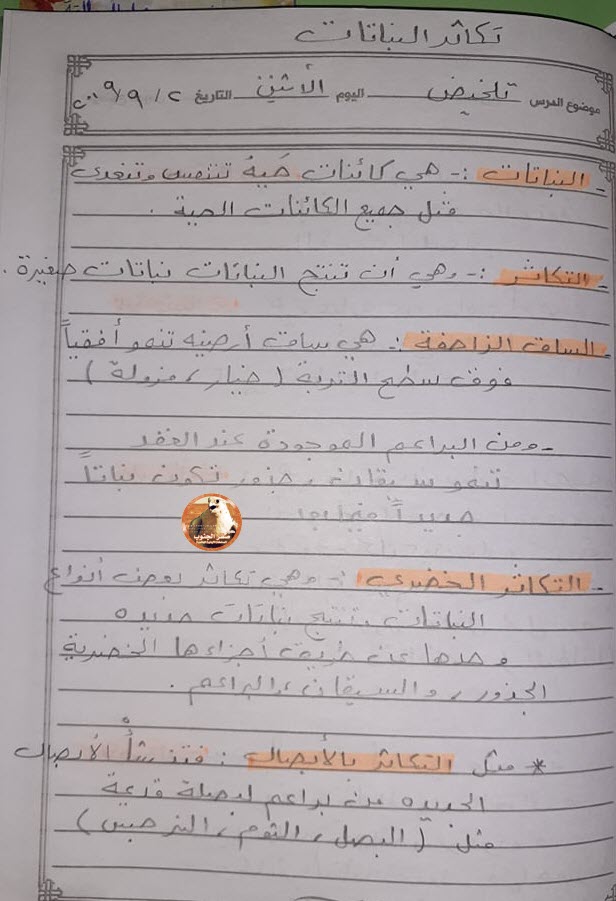 تكاثر النباتات
موضوع الدرس تلخيص اليوم الأثنين التاريخ
النباتات :- هي كائنات حية تتنفس وتتغذى
مثل جميع الكائنات الحية .
التكاثر :- وهي أن تنتج النباتات نباتات صغيرة .
الساق الزاحفة :- هي ساق أرضيه تنمو أفقياً
فوق سطح التربة ( خيار ، فرولة )
- ومن البراعم الموجودة عند العقد
تنمو سيقان و جذور تكون نباتاً
جديداً فيما بعد
- التكاثر الخضري :- وهي تكاثر بعض أنواع
النباتات وتنتج نباتات جديده
وحدها عن طريق أجزاءها الخضرية
الجذور ، والسيقان ، والبراعم .
* مثل التكاثر بالأبصال : فتنشأ الأبصال
الجديده من براعم لبصلة قديمة
مثل ( البصل ، الثوم ، النرجس )